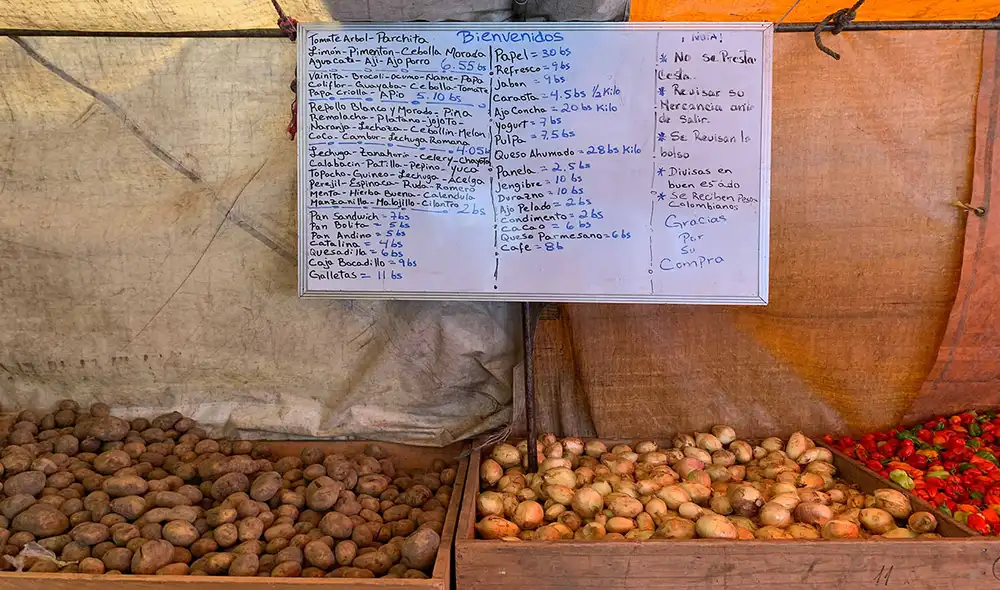 Bienvenidos
Tomate Arbol - Parchita
Limón - Pimentón - Cebolla Morada
Aguacate - Ají - Ajo porro 6.55 bs
Vainita - Brocoli - Ocumo - Ñame - Papa
Coliflor - Guayaba - Cebolla - Tomate
Papa Criolla - Apio 5.10 bs
Repollo Blanco y Morado - Piña
Remolacha - Platano - Jojoto -
Naranja - Lechoza - Cebollín - Melon
Coco - Cambur - Lechuga Romana
4.05
Lechuga - Zanahoria - Celery - Chayota
Calabacin - Patilla - Pepino - Yuca
Topocho - Guineo - Lechuga - Acelga
Perejil - Espinaca - Ruda - Romero
Menta - Hierba Buena - Calendula
Manzanilla - Malojillo - Cilantro 2 bs
Pan Sandwich = 7 bs
Pan Bolita = 5 bs
Pan Andino = 5 bs
Catalina = 4 bs
Quesadilla = 6 bs
Caja Bocadillo = 9 bs
Galletas = 11 bs
Papel = 30 bs
Refresco = 9 bs
Jabon = 9 bs
Caraota = 4.5 bs 1/2 Kilo
Ajo Concha = 20 bs Kilo
Yogurt = 7 bs
Pulpa = 7,5 bs
Queso Ahumado = 28 bs Kilo
Panela = 2.5 bs
Jengibre = 10 bs
Durazno = 10 bs
Ajo Pelado = 2 bs
Condimento = 2 bs
Cacao = 6 bs
Queso Parmesano = 6 bs
Cafe = 8 b
¡ Nota!
* No se Presta
Cesta.
* Revisar su
Mercancia antes
de Salir.
* Se Revisan lo
bolso
* Divisas en
buen estado
* Se Reciben Pesos
Colombianos
Gracias
Por
Su
Compra
11